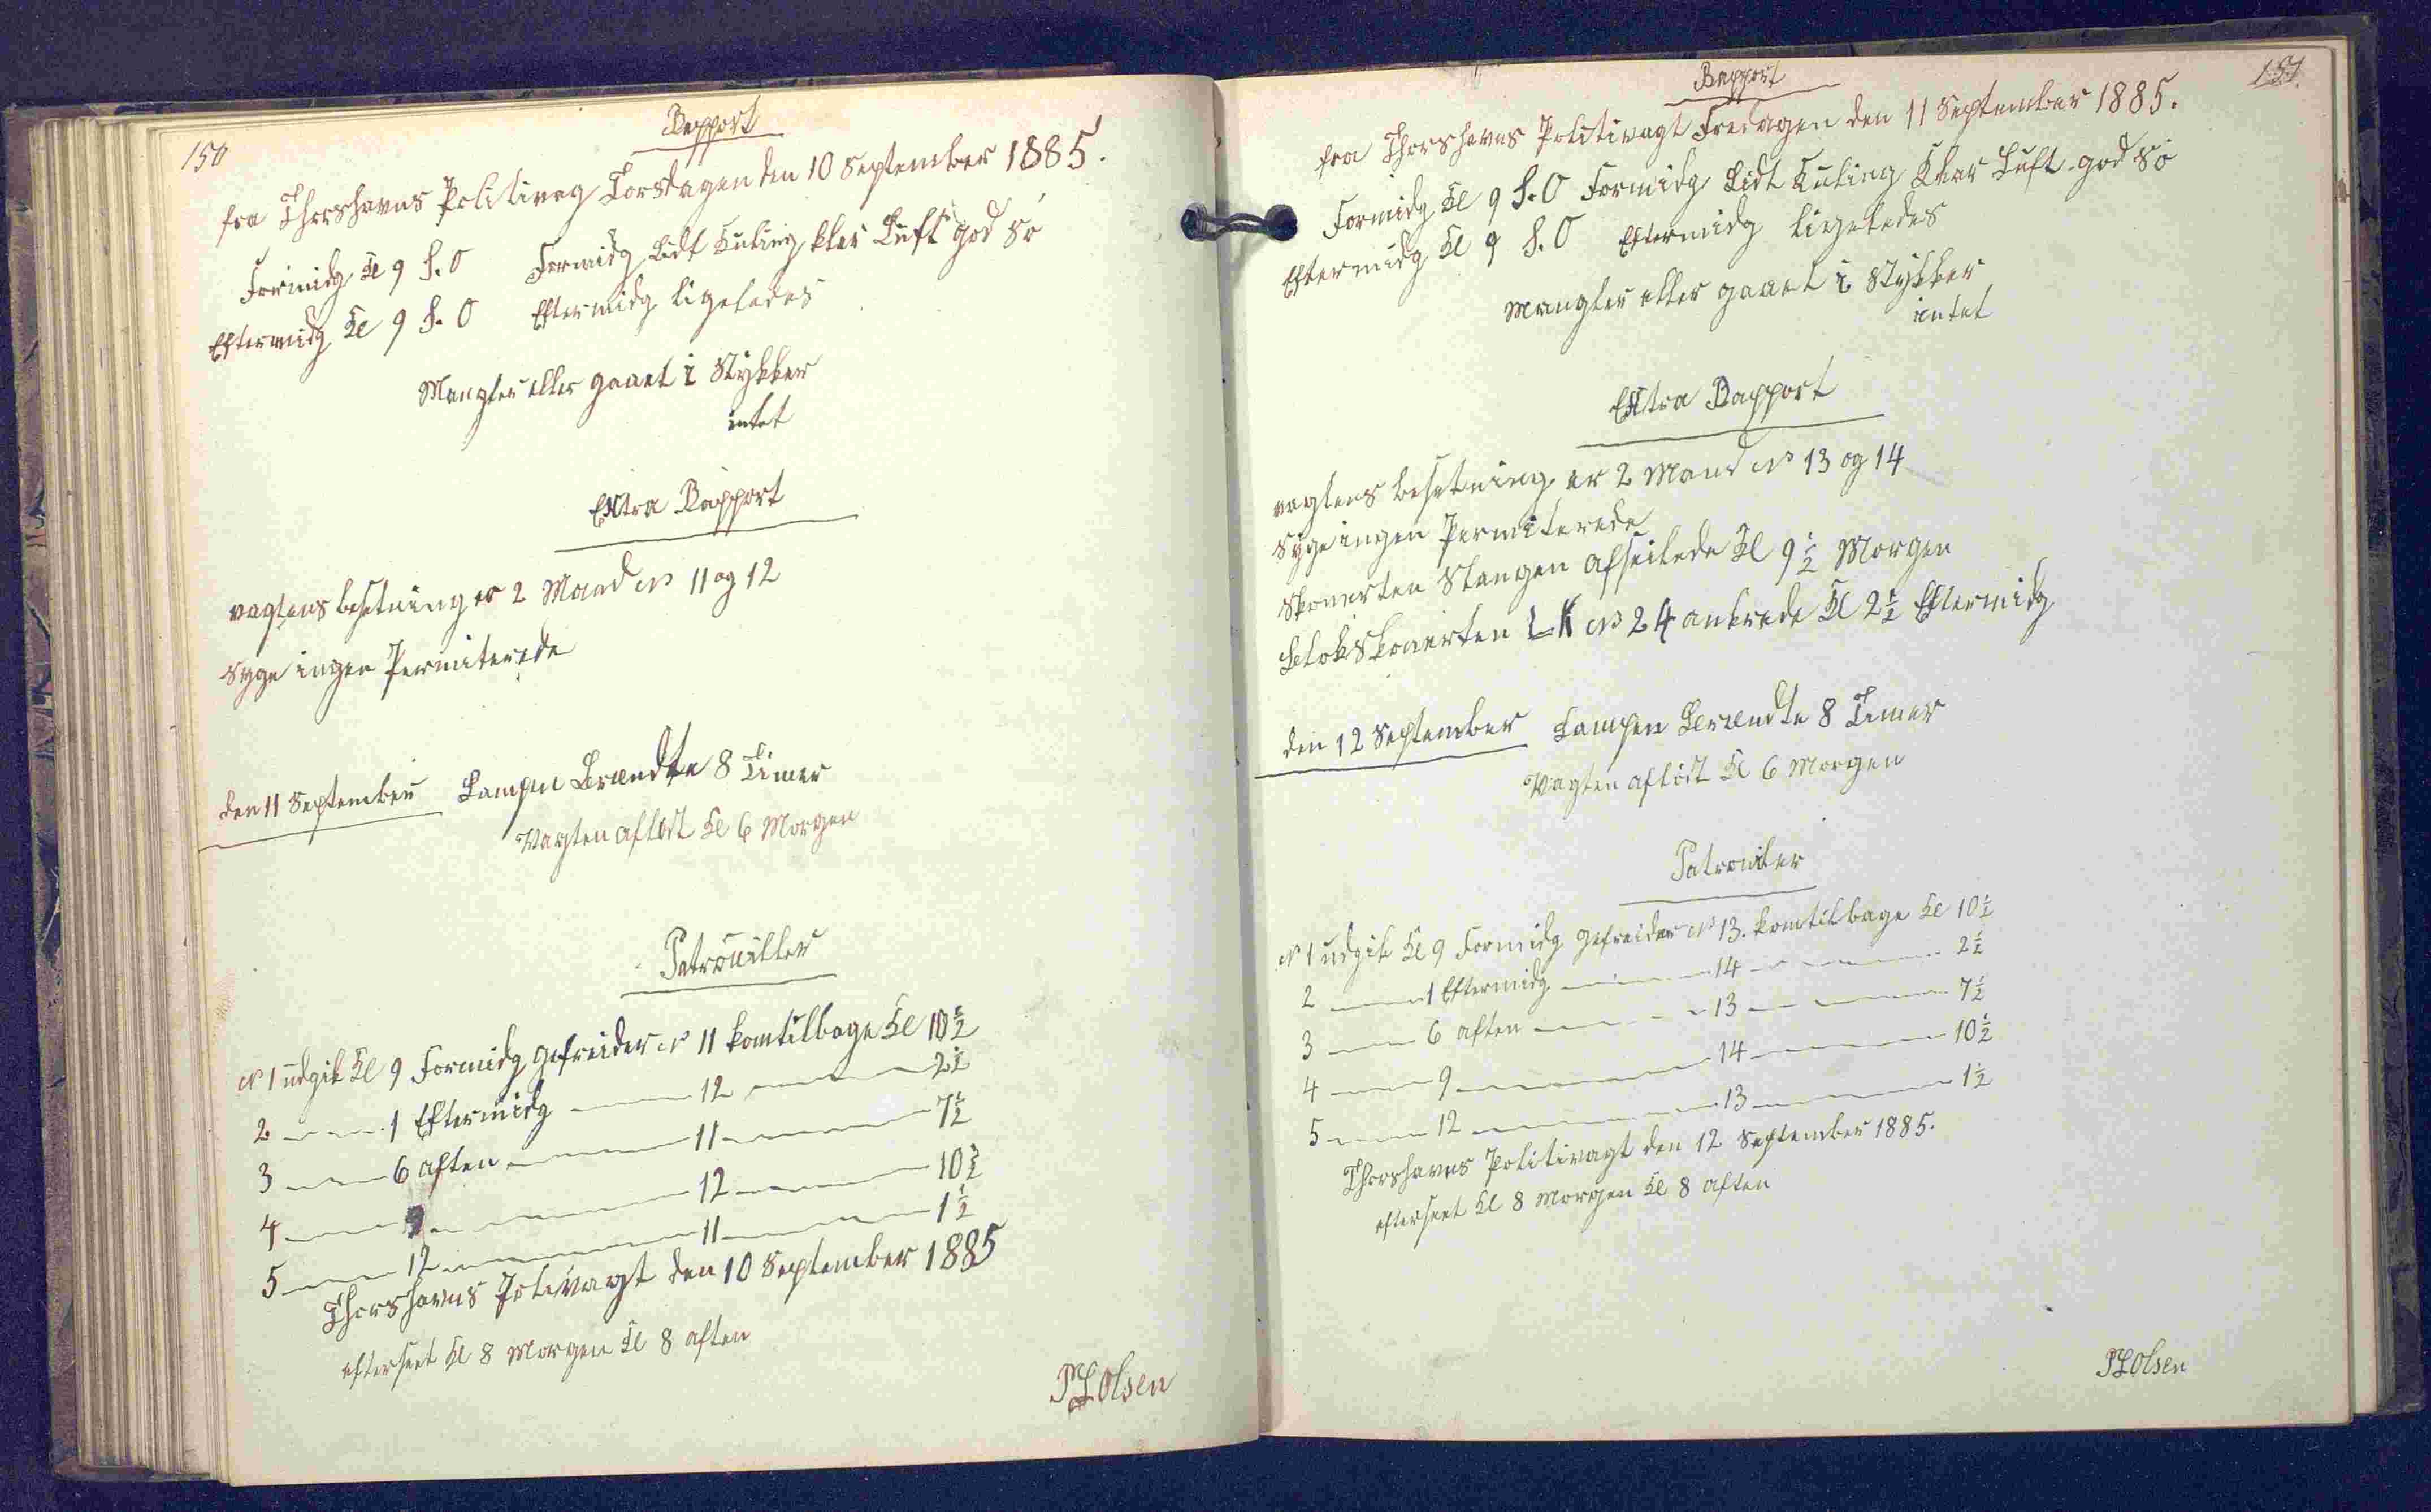 150
Rapport
fra Thorshavns Politivag Torsdagen den 10 September 1885.
Formidg Kl 9 S.O Formidg Lidt Kuling klar Luft god Sö
Eftermidg Kl 9 S.O Eftermidg ligeledes
Mangler eller gaaet i Stykker
intet
Extra Rapport
vagtens besetning er 2 Mand No 11 og 12
Syge ingen Permiterede
den 11 September Lampen Brændte 8 Timer
Vagten aflöst Kl 6 Morgen
Patrouiller
N 1 udgik Kl 9 Formidg gefreider No 11 komtilbage Kl 10½
2 — 1 Eftermidg — 12 — 2½
3 — 6 aften — 11 — 7½
4 — 9 — 12 — 10½
5 — 12 — 11 — 1½
Thorshavns Polivagt den 10 September 1885
efterseet Kl 8 Morgen Kl 8 aften
Olsen
151
Rapport
fra Thorshavns Politivagt Fredagen den 11 September 1885.
Formidg Kl 9 S.O Formidg Lidt Kuling Klar Luft god Sö
Eftermidg Kl 9 S.O Eftermidg ligeledes
Mangler eller gaaet i Stykker
intet
Extra Rapport
vagtens besetning er 2 Mand No 13 og 14
Syge ingen Permiterede
Skonerten Stangen afseilede Kl 9½ Morgen
Slokskonerten LK No 24 ankrede Kl 2½ Eftermidg
den 12 September Lampen Brændte 8 Timer
Vagten aflöst Kl 6 Morgen
Patrouiler
N 1 udgik Kl 9 Formidg gefreider No 13. komtilbage Kl 10½
2 — 1 Eftermidg — 14 — 2½
3 — 6 aften — 13 — 7½
4 — 9 — 14 — 10½
5 — 12 — 13 — 1½
Thorshavns Politivagt den 12 September 1885.
efterseet Kl 8 Morgen Kl 8 aften
Olsen